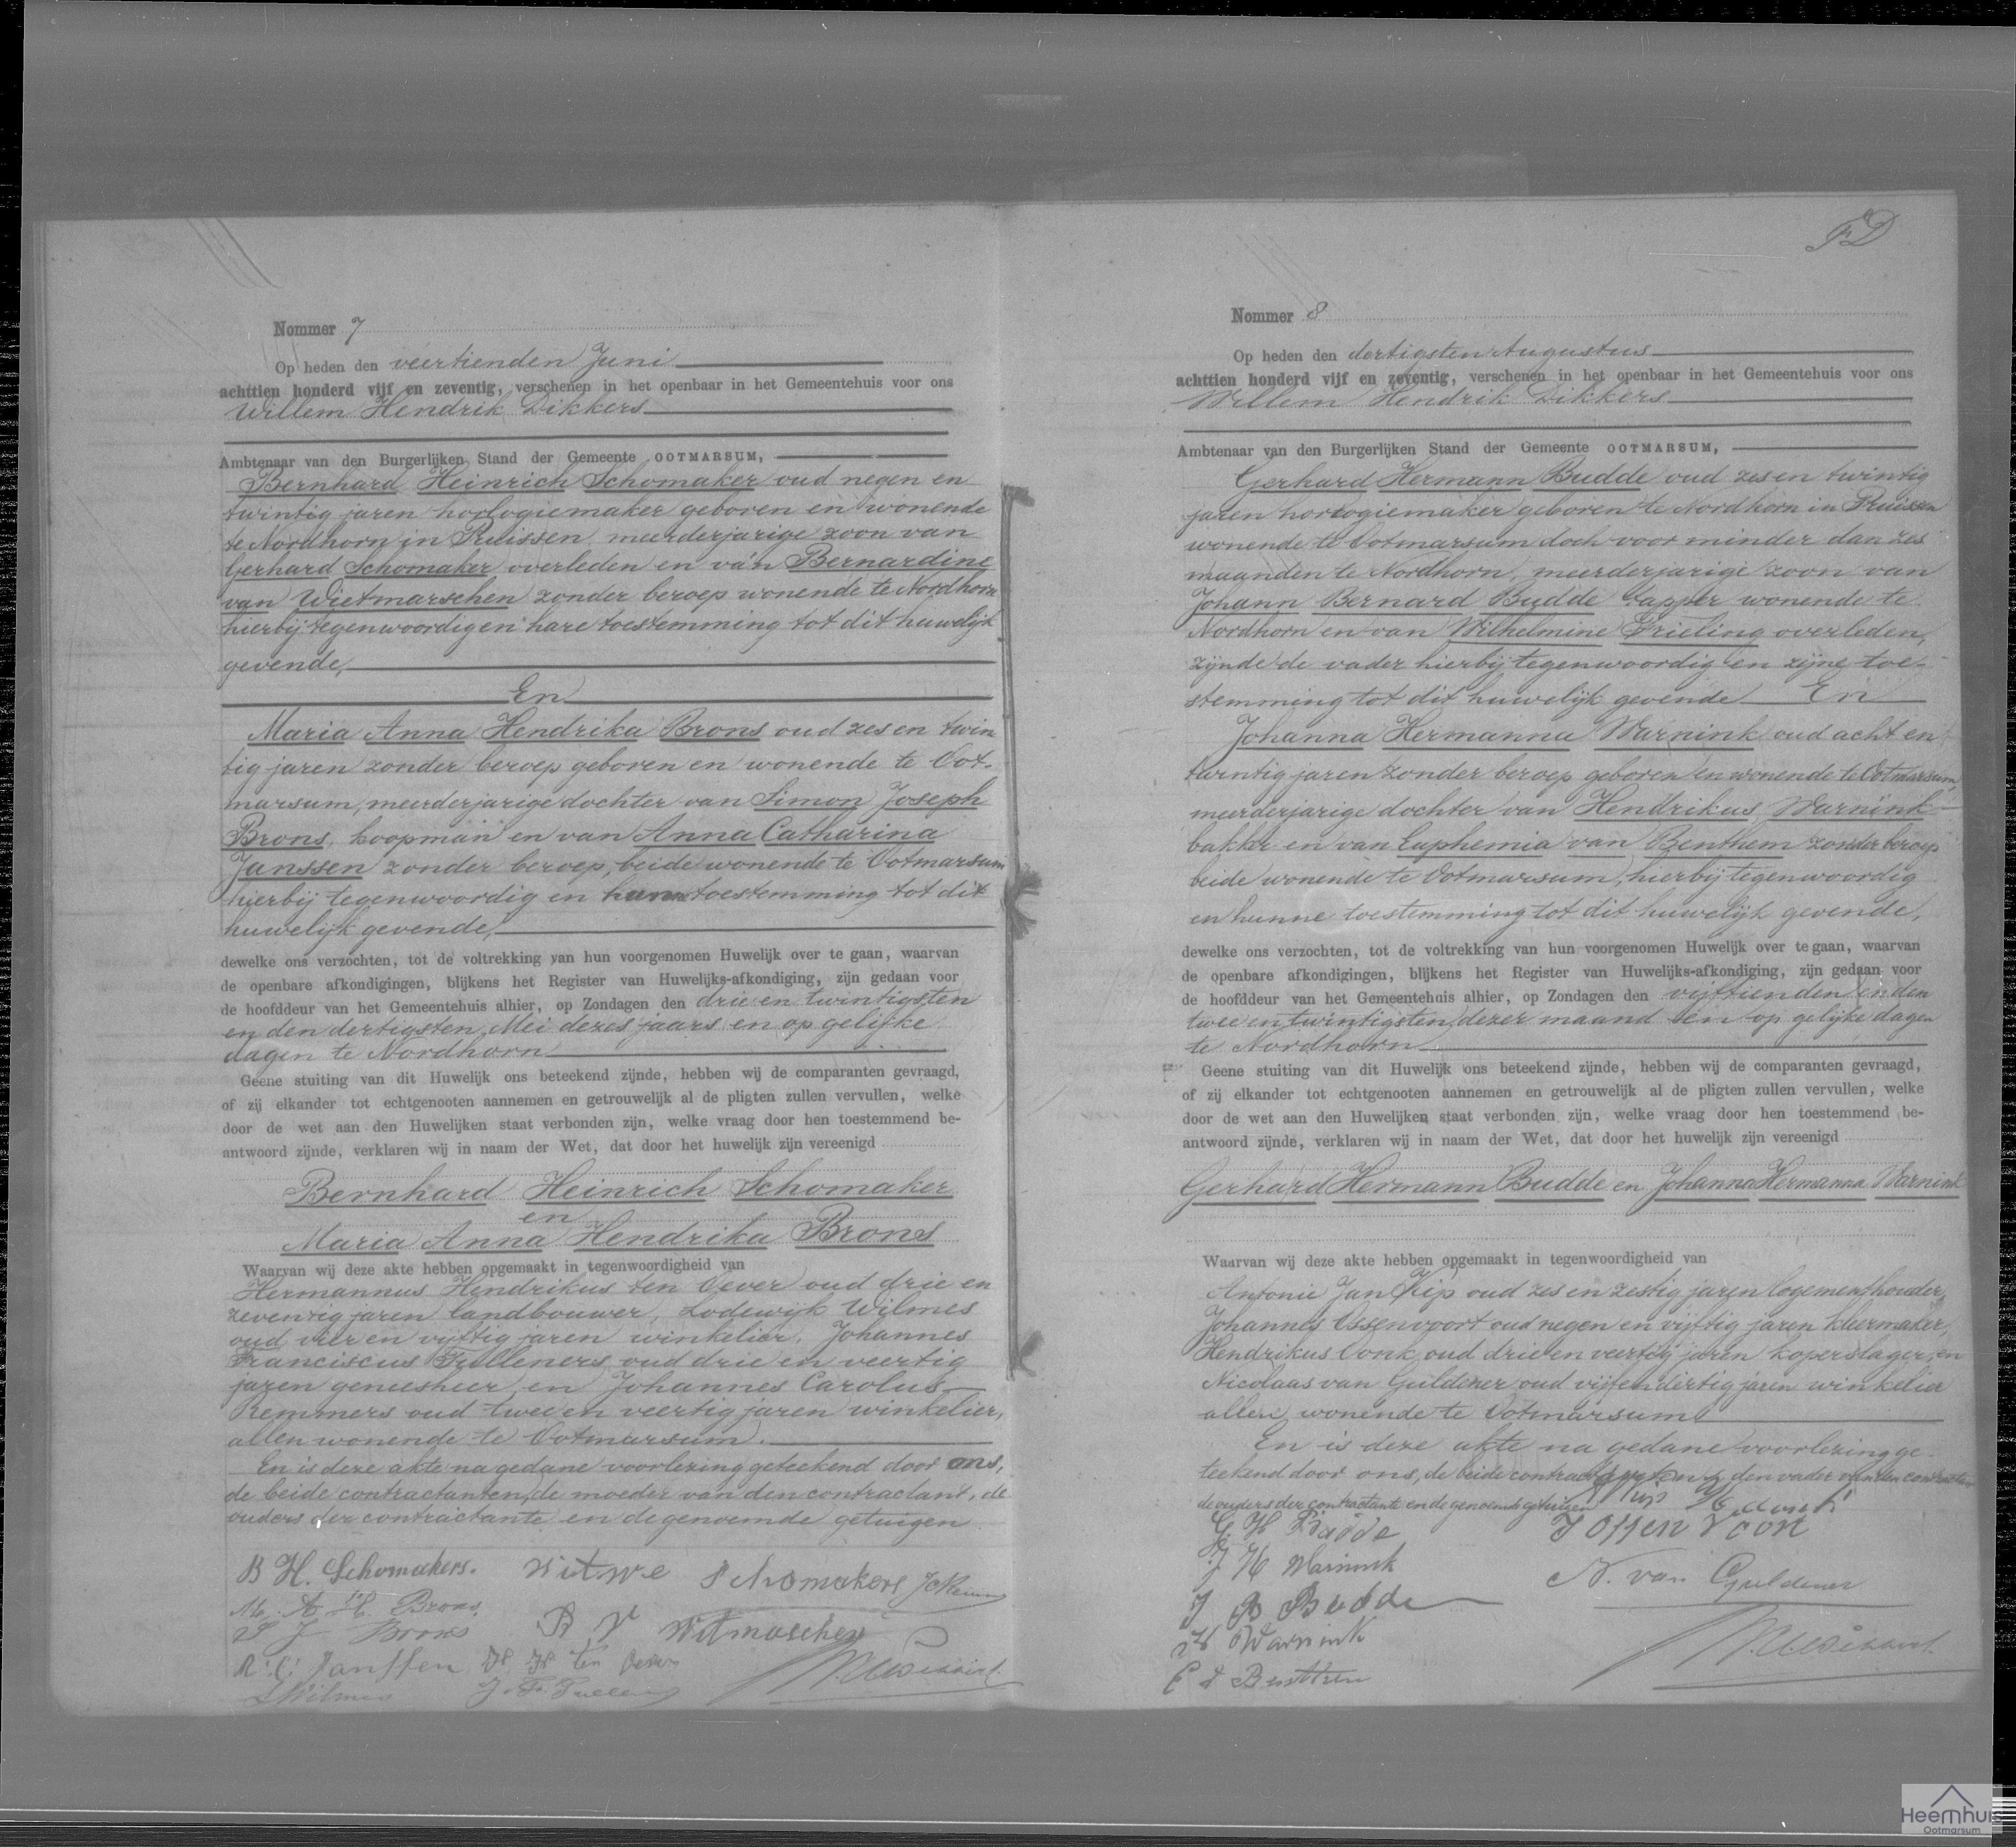 Nommer 7
Op heden den veertienden Juni
achttien honderd vijf en zeventig, verschenen in het openbaar in het Gemeentehuis voor ons
Willem Hendrik Dikkers
Ambtenaar van den Burgerlijken Stand der Gemeente OOTMARSUM,
Bernhard Heinrich Schomaker oud negen en
twintig jaren horlogiemaker geboren en wonende
te Nordhorn in Pruissen, meerderjarige zoon van
Gerhard Schomaker overleden en van Bernardine
van Wietmarschen zonder beroep wonende te Nordhorn
hierbij tegenwoordig en hare toestemming tot dit huwelijk
gevende,
En
Maria Anna Hendrika Brons oud zes en twin
tig jaren zonder beroep geboren en wonende te Oot-
marsum, meerderjarige dochter van Simon Joseph
Brons, koopman en van Anna Catharina
Janssen zonder beroep, beide wonende te Ootmarsum
hierbij tegenwoordig en hunne toestemming tot dit
huwelijk gevende,
dewelke ons verzochten, tot de voltrekking van hun voorgenomen Huwelijk over te gaan, waarvan
de openbare afkondigingen, blijkens het Register van Huwelijks-afkondiging, zijn gedaan voor
de hoofddeur van het Gemeentehuis alhier, op Zondagen den drie en twintigsten
en den dertigsten Mei dezes jaars en op gelijke
dagen te Nordhorn
Geene stuiting van dit Huwelijk ons beteekend zijnde, hebben wij de comparanten gevraagd,
of zij elkander tot echtgenooten aannemen en getrouwelijk al de pligten zullen vervullen, welke
door de wet aan den Huwelijken staat verbonden zijn, welke vraag door hen toestemmend be-
antwoord zijnde, verklaren wij in naam der Wet, dat door het huwelijk zijn vereenigd
Bernhard Heinrich Schomaker
en
Maria Anna Hendrika Brons
Waarvan wij deze akte hebben opgemaakt in tegenwoordigheid van
Hermannus Hendrikus ten Oever oud drie en
zeventig jaren landbouwer, Lodewijk Wilmes
oud vier en vijftig jaren winkelier, Johannes
Franciscus Tulleners oud drie en veertig
jaren geneesheer en Johannes Carolus
Remmers oud twee en veertig jaren winkelier,
allen wonende te Ootmarsum.
En is deze akte na gedane voorlezing geteekend door ons,
de beide contractanten, de moeder van den contractant, de
ouders der contractante en de genoemde getuigen
B H. Schomakers. Witwe Schomakers
M. A H. Brons
S J Brons B V Witmaschen
A. C. Janssen H H ten Oever
L Wilmes J. F. Tulleners
FD
Nommer 8
Op heden den dertigsten Augustus
achttien honderd vijf en zeventig, verschenen in het openbaar in het Gemeentehuis voor ons
Willem Hendrik Dikkers
Ambtenaar van den Burgerlijken Stand der Gemeente OOTMARSUM,
Gerhard Hermann Budde oud zes en twintig
jaren horlogiemaker geboren te Nordhorn in Pruissen
wonende te Ootmarsum doch voor minder dan zes
maanden te Nordhorn, meerderjarige zoon van
Johann Bernard Budde tapper wonende te
Nordhorn en van Wilhelmine Frieling overleden,
zijnde de vader hierbij tegenwoordig en zijne toe-
stemming tot dit huwelijk gevende En
Johanna Hermanna Warnink oud acht en
twintig jaren zonder beroep geboren en wonende te Ootmarsum,
meerderjarige dochter van Hendrikus Warnink
bakker en van Euphemia van Benthem zonder beroep
beide wonende te Ootmarsum, hierbij tegenwoordig
en hunne toestemming tot dit huwelijk gevende,
dewelke ons verzochten, tot de voltrekking van hun voorgenomen Huwelijk over te gaan, waarvan
de openbare afkondigingen, blijkens het Register van Huwelijks-afkondiging, zijn gedaan voor
de hoofddeur van het Gemeentehuis alhier, op Zondagen den vijftienden en den
twee en twintigsten dezer maand en op gelijke dagen
te Nordhorn
Geene stuiting van dit Huwelijk ons beteekend zijnde, hebben wij de comparanten gevraagd,
of zij elkander tot echtgenooten aannemen en getrouwelijk al de pligten zullen vervullen, welke
door de wet aan den Huwelijken staat verbonden zijn, welke vraag door hen toestemmend be-
antwoord zijnde, verklaren wij in naam der Wet, dat door het huwelijk zijn vereenigd
Gerhard Hermann Budde en Johanna Hermanna Warnink
Waarvan wij deze akte hebben opgemaakt in tegenwoordigheid van
Antonie Jan Kip oud zes en zestig jaren logementhouder,
Johannes Ossenvoort oud negen en vijftig jaren kleermaker,
Hendrikus Conk oud drie en veertig jaren koperslager, en
Nicolaas van Guldener oud vijf en dertig jaren winkelier
allen wonende te Ootmarsum
En is deze akte na gedane voorlezing ge-
teekend door ons, de beide contractanten, den vader van den contractant
de ouders der contractante en de genoemde getuigen
G H Budde J Ossenvoort
J H Warnink
J B Budde N. van Guldener
H Warnink
E v Benthem
Heemhuis
Ootmarsum